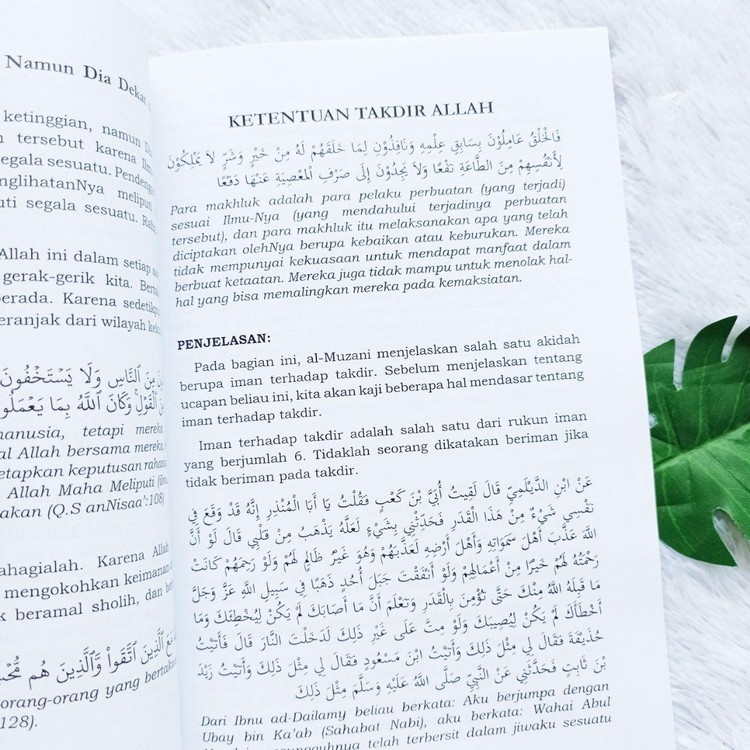 Namun Dia Dekat
ketinggian, namun
tersebut karena
segala sesuatu.
englihatanNya meliputi
uti segala sesuatu.
Allah ini dalam setiap
gerak-gerik kita.
erada. Karena
eranjak dari wilayah
مِنَ النَّاسِ وَلَا يَسْتَخْفُونَ
الْقَوْلِ ۚ وَكَانَ اللَّهُ بِمَا يَعْمَلُو
anusia, tetapi
al Allah bersama mereka,
etapkan keputusan
Allah Maha Meliputi
akan (Q.S anNisaa':108)
ahagialah. Karena Allah
mengokohkan keimanan
k beramal sholih, dan
مَعَ الَّذِينَ اتَّقَوا وَّالَّذِينَ هُم
orang-orang yang
128).
KETENTUAN TAKDIR ALLAH
فَالْخَلْقُ عَامِلُوْنَ بِسَابِقِ عِلْمِهِ وَنَافِذُوْنَ لِمَا خَلَقَهُمْ لَهُ مِنْ خَيْرٍ وَشَرٍّ لاَ يَمْلِكُوْنَ
لِأَنْفُسِهِمْ مِنَ الطَّاعَةِ نَفْعًا وَلاَ يَجِدُوْنَ إِلَى صَرْفِ الْمَعْصِيَةِ عَنْهَا دَفْعًا
Para makhluk adalah para pelaku perbuatan (yang terjadi)
sesuai Ilmu-Nya (yang mendahului terjadinya perbuatan
tersebut), dan para makhluk itu melaksanakan apa yang telah
diciptakan olehNya berupa kebaikan atau keburukan. Mereka
tidak mempunyai kekuasaan untuk mendapat manfaat dalam
berbuat ketaatan. Mereka juga tidak mampu untuk menolak hal-
hal yang bisa memalingkan mereka pada kemaksiatan.
PENJELASAN:
Pada bagian ini, al-Muzani menjelaskan salah satu akidah
berupa iman terhadap takdir. Sebelum menjelaskan tentang
ucapan beliau ini, kita akan kaji beberapa hal mendasar tentang
iman terhadap takdir.
Iman terhadap takdir adalah salah satu dari rukun iman
yang berjumlah 6. Tidaklah seorang dikatakan beriman jika
tidak beriman pada takdir.
عَنْ ابْنِ الدَّيْلَمِيِّ قَالَ لَقِيتُ أُبَيَّ بْنَ كَعْبٍ فَقُلْتُ يَا أَبَا الْمُنْذِرِ إِنَّهُ قَدْ وَقَعَ فِي
نَفْسِي شَيْءٌ مِنْ هَذَا الْقَدَرِ فَحَدِّثْنِي بِشَيْءٍ لَعَلَّهُ يَذْهَبُ مِنْ قَلْبِي قَالَ لَوْ أَنَّ
اللَّهَ عَذَّبَ أَهْلَ سَمَوَاتِهِ وَأَهْلَ أَرْضِهِ لَعَذَّبَهُمْ وَهُوَ غَيْرُ ظَالِمٍ لَهُمْ وَلَوْ رَحِمَهُمْ كَانَتْ
رَحْمَتُهُ لَهُمْ خَيْرًا مِنْ أَعْمَالِهِمْ وَلَوْ أَنْفَقْتَ جَبَلَ أُحُدٍ ذَهَبًا فِي سَبِيلِ اللَّهِ عَزَّ وَجَلَّ
مَا قَبِلَهُ اللَّهُ مِنْكَ حَتَّى تُؤْمِنَ بِالْقَدَرِ وَتَعْلَمَ أَنَّ مَا أَصَابَكَ لَمْ يَكُنْ لِيُخْطِئَكَ وَمَا
أَخْطَأَكَ لَمْ يَكُنْ لِيُصِيبَكَ وَلَوْ مِتَّ عَلَى غَيْرِ ذَلِكَ لَدَخَلْتَ النَّارَ قَالَ فَأَتَيْتُ
حُذَيْفَةَ فَقَالَ لِي مِثْلَ ذَلِكَ وَأَتَيْتُ ابْنَ مَسْعُودٍ فَقَالَ لِي مِثْلَ ذَلِكَ وَأَتَيْتُ زَيْدَ
بْنَ ثَابِتٍ فَحَدَّثَنِي عَنْ النَّبِيِّ صَلَّى اللَّهُ عَلَيْهِ وَسَلَّمَ مِثْلَ ذَلِكَ
Dari Ibnu ad-Dailamy beliau berkata: Aku berjumpa dengan
Ubay bin Ka'ab (Sahabat Nabi), aku berkata: Wahai Abul
telah terbersit dalam jiwaku sesuatu